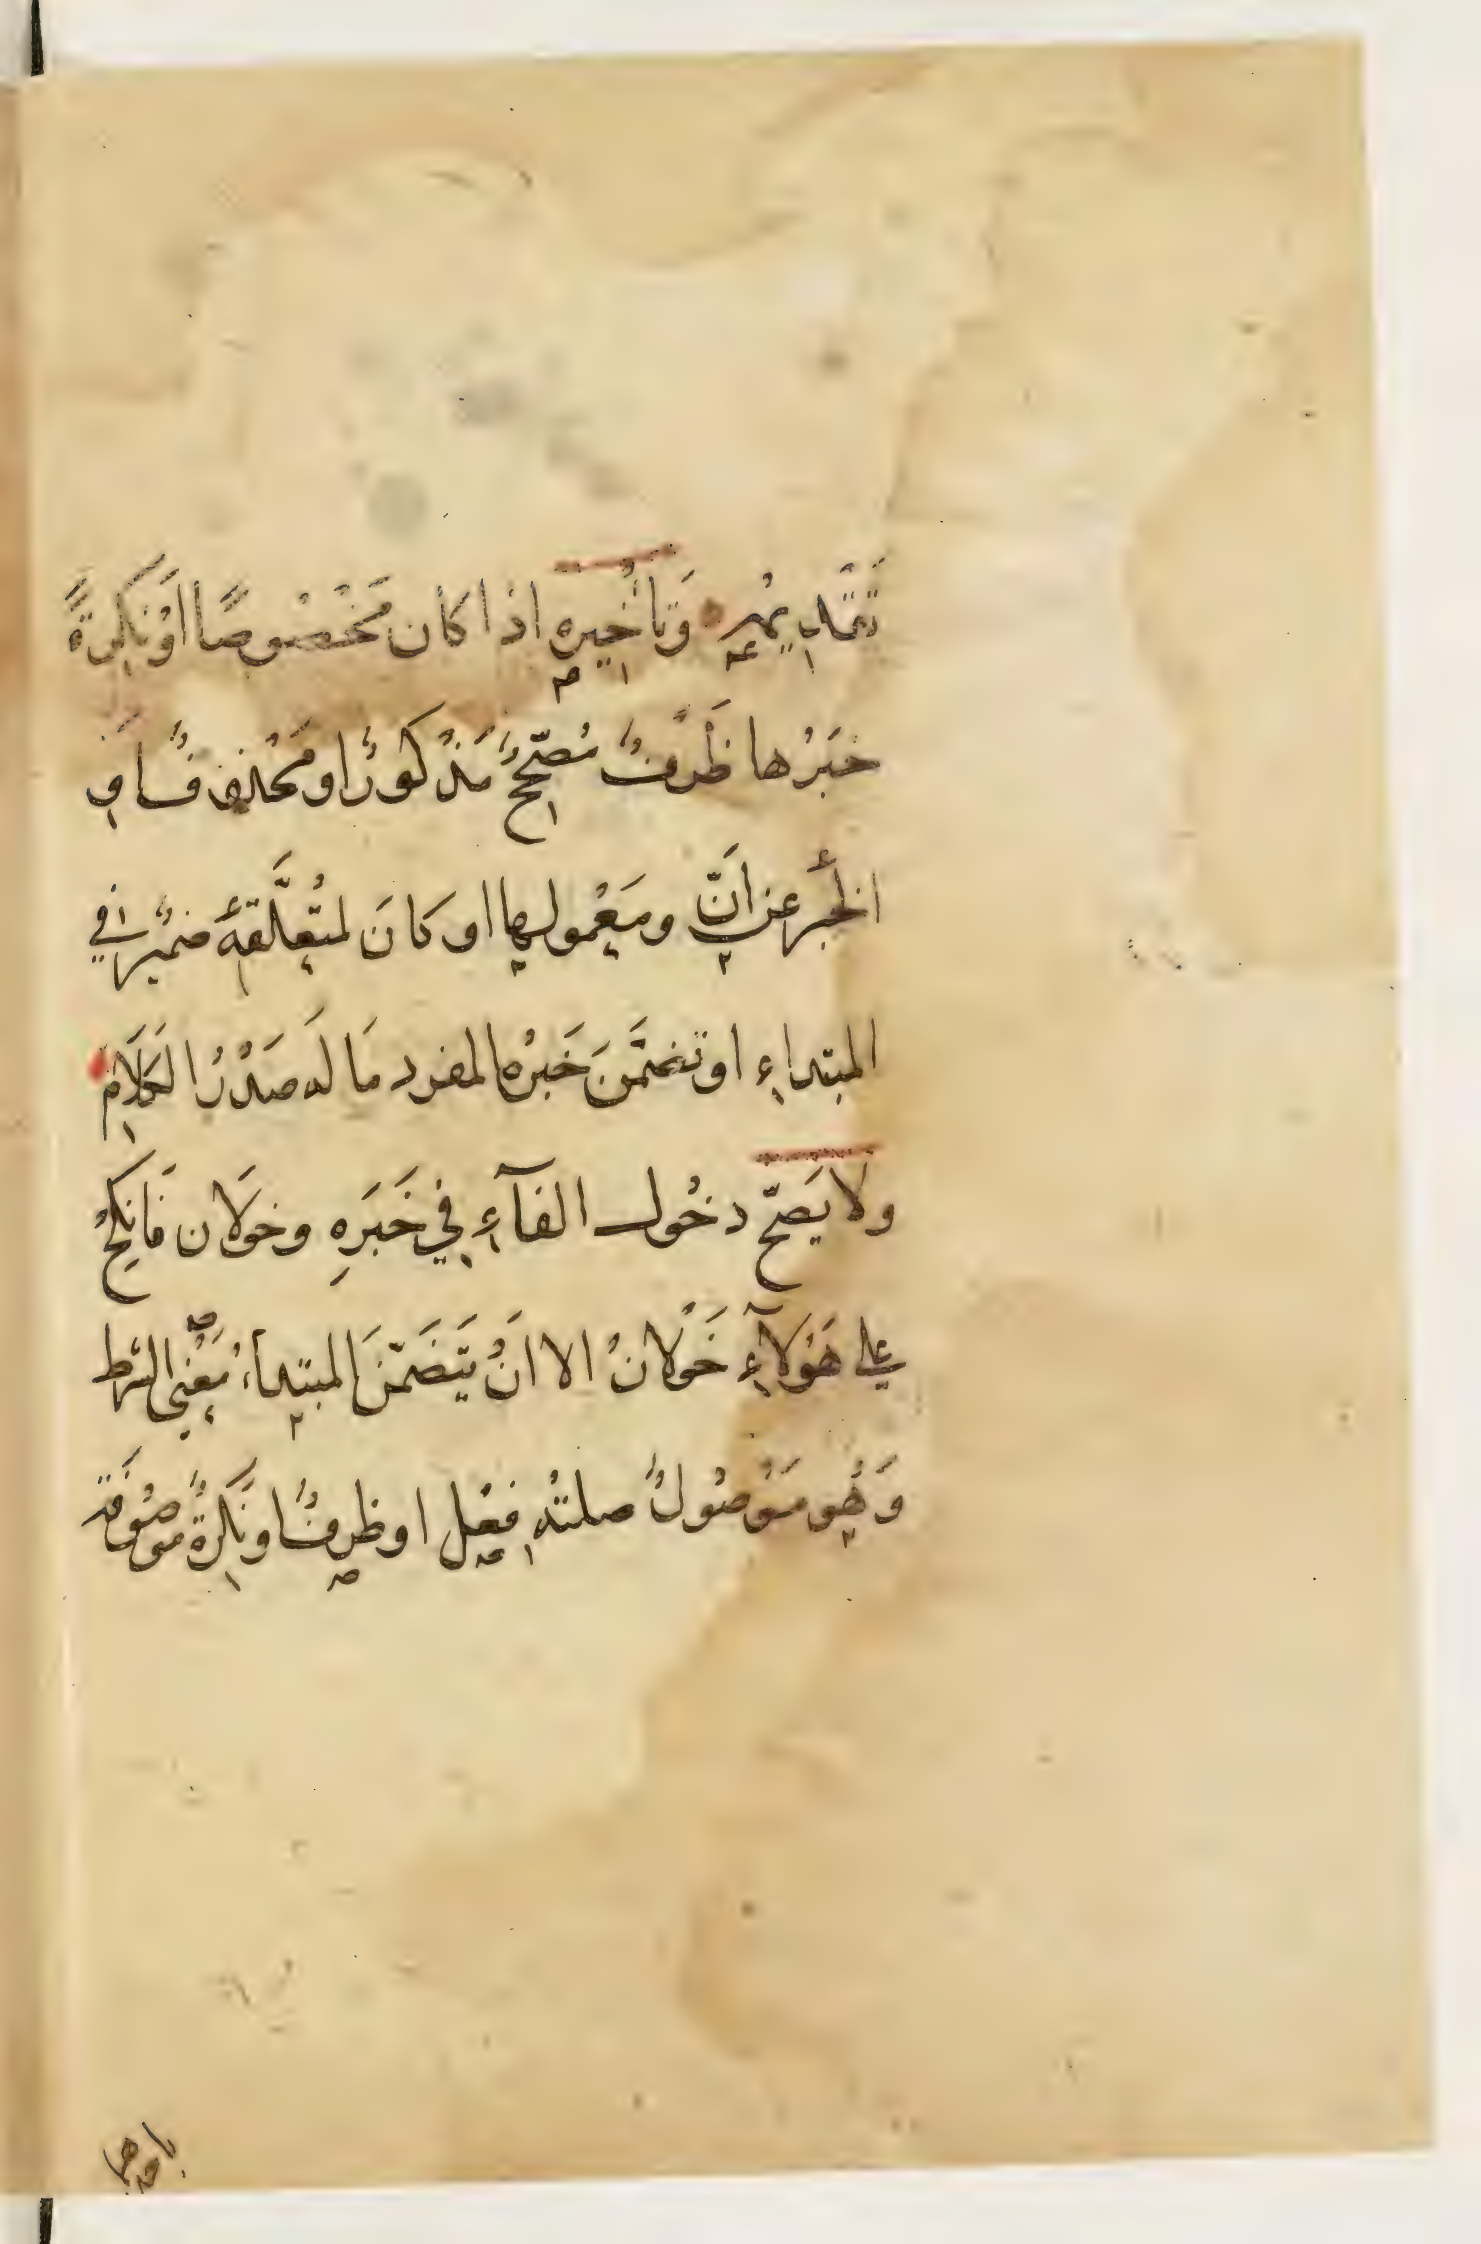 تَقْدِيمُهُ وَتَأْخِيرِهِ اذا كان مَخْصُوصًا اَوْ نَكِرَةً
خَبَرُها ظَرْفٌ مُصَحِّحٌ مَذْكُورٌ او مَحْذُوفٌ اَوِ
الخَبَر عن اَنَّ ومَعْمُولِها او كانَ لمُتَعَلَّقِهِ ضمِيرٌ في
المبتداءِ او تضَمَّنَ خَبَرُه المفرد مَا لَه صَدْرُ الكَلَامِ
ولا يَصِحّ دخُول الفآءِ فِي خَبَرِهِ وخَولَان فَانكِحْ
علي هَؤُلآءِ خَوْلَانُ الا اَنْ يَتَضَمَّنَ المبتدأُ مَعْنَي الشرط
وَهُوَ مَوْصُولٌ صلتُه فِعْل او ظرفٌ او نَكِرَةٌ موصُوفَة
باحدهما